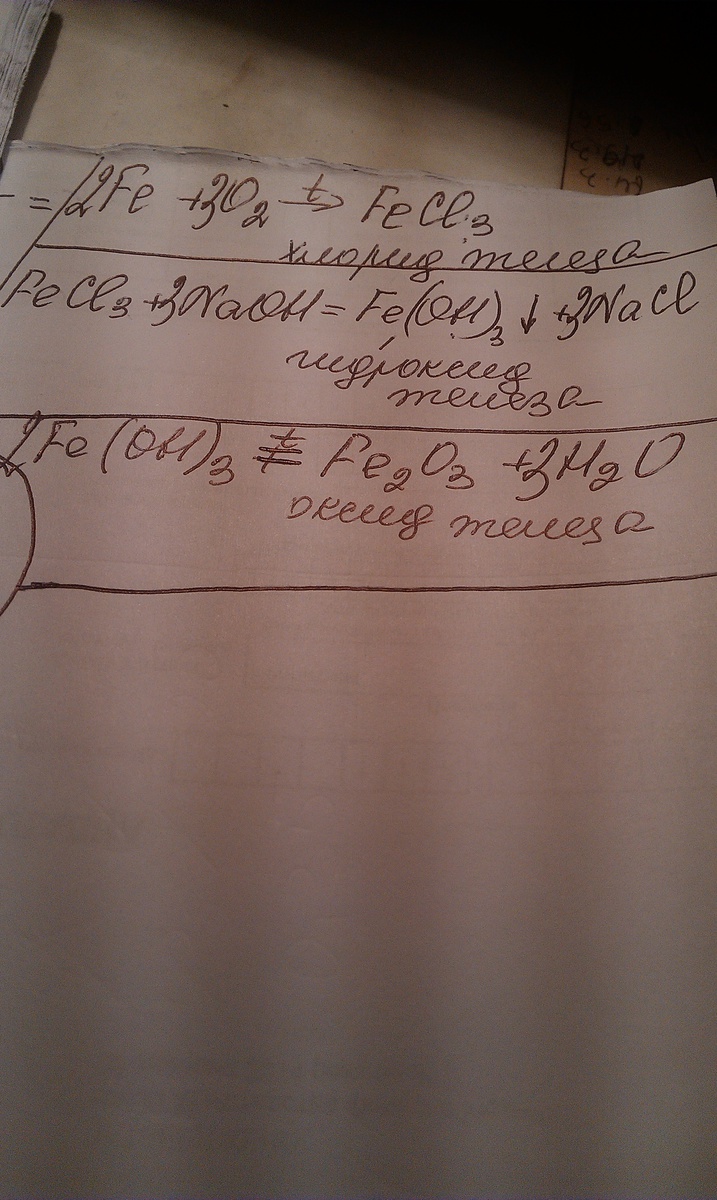 - = 2Fe + 3O₂ →ᵗ FeCl₃
хлорид железа
FeCl₃ + 3NaOH = Fe(OH)₃ ↓ + 3NaCl
гидроксид
железа
2Fe(OH)₃ =ᵗ Fe₂O₃ + 3H₂O
оксид железа